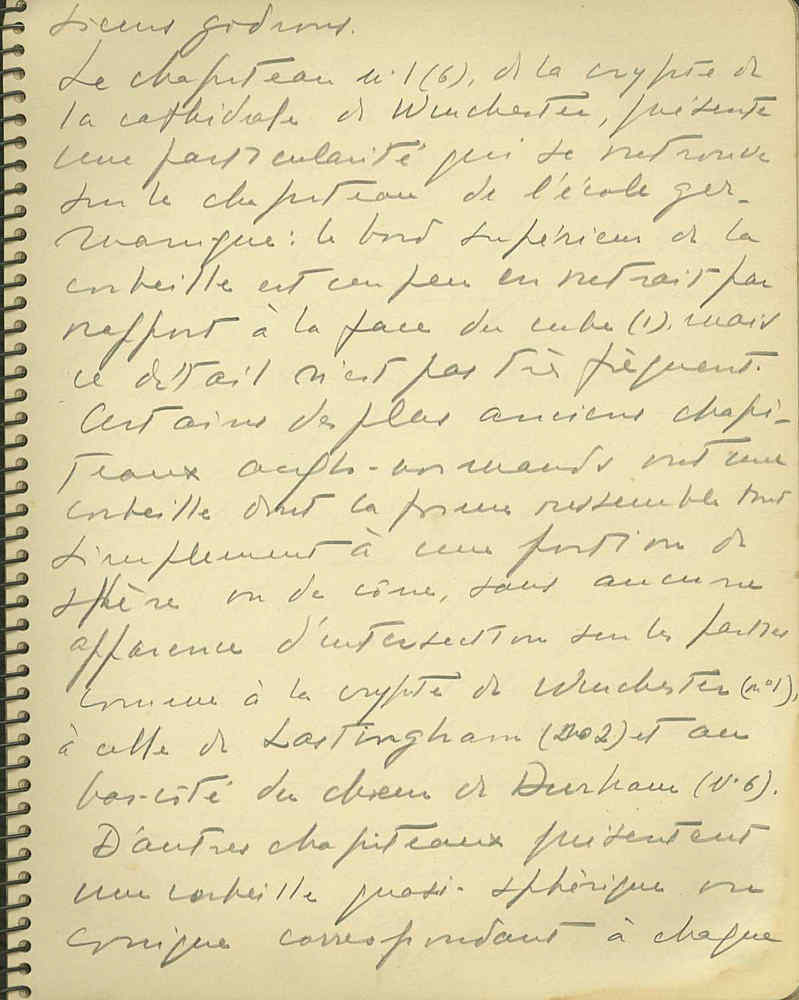 sieurs godrons.
Le chapiteau n° 1 (6), de la crypte de
la cathédrale de Winchester, présente
une particularité qui se retrouve
sur le chapiteau de l'école ger-
manique: le bord supérieur de la
corbeille est un peu en retrait par
rapport à la face du cube (1). mais
ce détail n'est pas très fréquent.
Certains des plus anciens chapi-
teaux anglo-normands ont une
corbeille dont la forme ressemble tout
simplement à une portion de
sphère ou de cône, sans aucune
apparence d'intersection sur les parties
comme à la crypte de Winchester (n° 1),
à celle de Lastingham (No 2) et au
bas-côté du chœur de Durham (N° 6).
D'autres chapiteaux présentent
une corbeille quasi-sphérique ou
conique correspondant à chaque